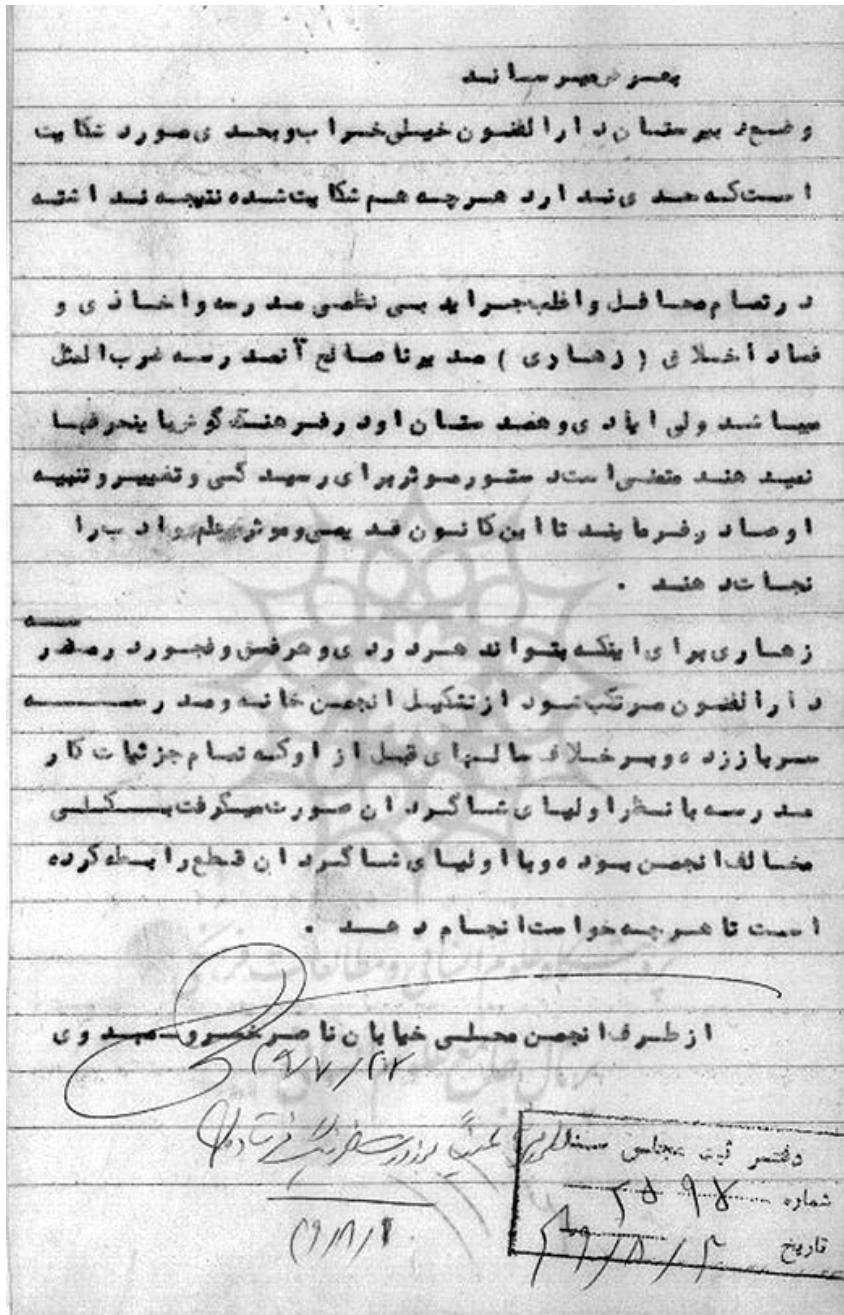 بعرض میرساند
وضع دبیرستان دارالفنون خیلی خراب و بحدی مورد شکایت
است که حدی ندارد هرچه هم شکایت شده نتیجه نداشته
در تمام محافل و اغلب جراید بی نظمی مدرسه و اخاذی و
فساد اخلاق (زهاری) مدیر ناصالح آنمدرسه ضرب المثل
میباشد ولی ایادی و همدستان او در فرهنگ گوش باینحرفها
نمیدهند متمنی است دستور موثر برای رسیدگی و تغییر و تنبیه
او صادر فرمایند تا این کانون قدیمی و موثر علم و ادب را
نجات دهند .
زهاری برای اینکه بتواند هر دزدی و هر فسق و فجور در مدرسه
دارالفنون مرتکب شود از تشکیل انجمن خانه و مدرسه
سرباز زده و بر خلاف سالهای قبل از او که تمام جزئیات کار
مدرسه با نظر اولیای شاگردان صورت میگرفت بکلی
مخالف انجمن بوده و با اولیای شاگردان قطع رابطه کرده
است تا هرچه خواست انجام دهد .
پژوهشگاه علوم انسانی و مطالعات فرهنگی
از طرف انجمن محلی خیابان ناصر خسرو
پرتال جامع علوم انسانی
۲۹/۷/۲۳
دفتر ثبت مجلس سنا
شماره ۲۵۹۵
تاریخ ۲۹/۸/۲